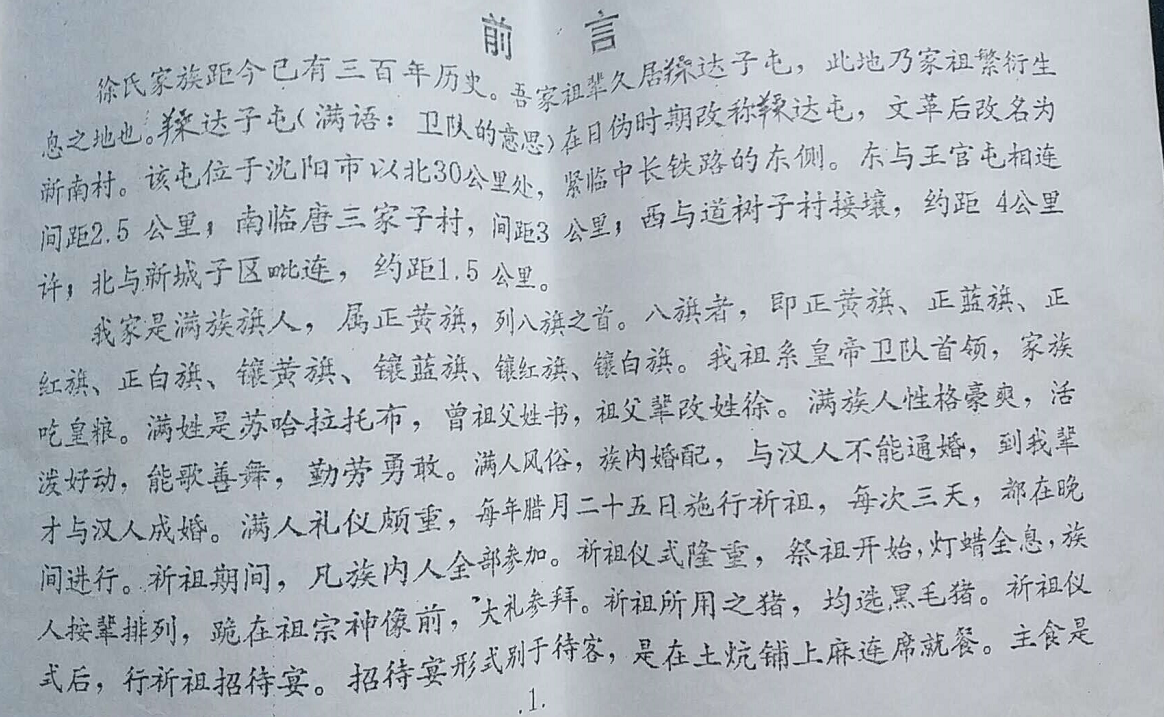 前 言
徐氏家族距今已有三百年历史。吾家祖辈久居達子屯，此地乃家祖繁衍生
息之地也。达子屯(满语：卫队的意思)在日伪时期改称达屯，文革后改名为
新南村。该屯位于沈阳市以北30公里处，紧临中长铁路的东侧。东与王官屯相连
间距2.5 公里，南临唐三家子村，间距3 公里，西与道树子村接壤，约距 4公里
许，北与新城子区毗连，约距1.5 公里。
我家是满族旗人，属正黄旗，列八旗之首。八旗者，即正黄旗、正蓝旗、正
红旗、正白旗、镶黄旗、镶蓝旗、镶红旗、镶白旗。我祖系皇帝卫队首领，家族
吃皇粮。满姓是苏哈拉托布，曾祖父姓书，祖父辈改姓徐。满族人性格豪爽，活
泼好动，能歌善舞，勤劳勇敢。满人风俗，族内婚配，与汉人不能通婚，到我辈
才与汉人成婚。满人礼仪颇重，每年腊月二十五日施行祈祖，每次三天，都在晚
间进行。祈祖期间，凡族内人全部参加。祈祖仪式隆重，祭祖开始，灯蜡全息，族
人按辈排列，跪在祖宗神像前，大礼参拜。祈祖所用之猪，均选黑毛猪。祈祖仪
式后，行祈祖招待宴。招待宴形式别于待客，是在土炕铺上麻连席就餐。主食是
.1.